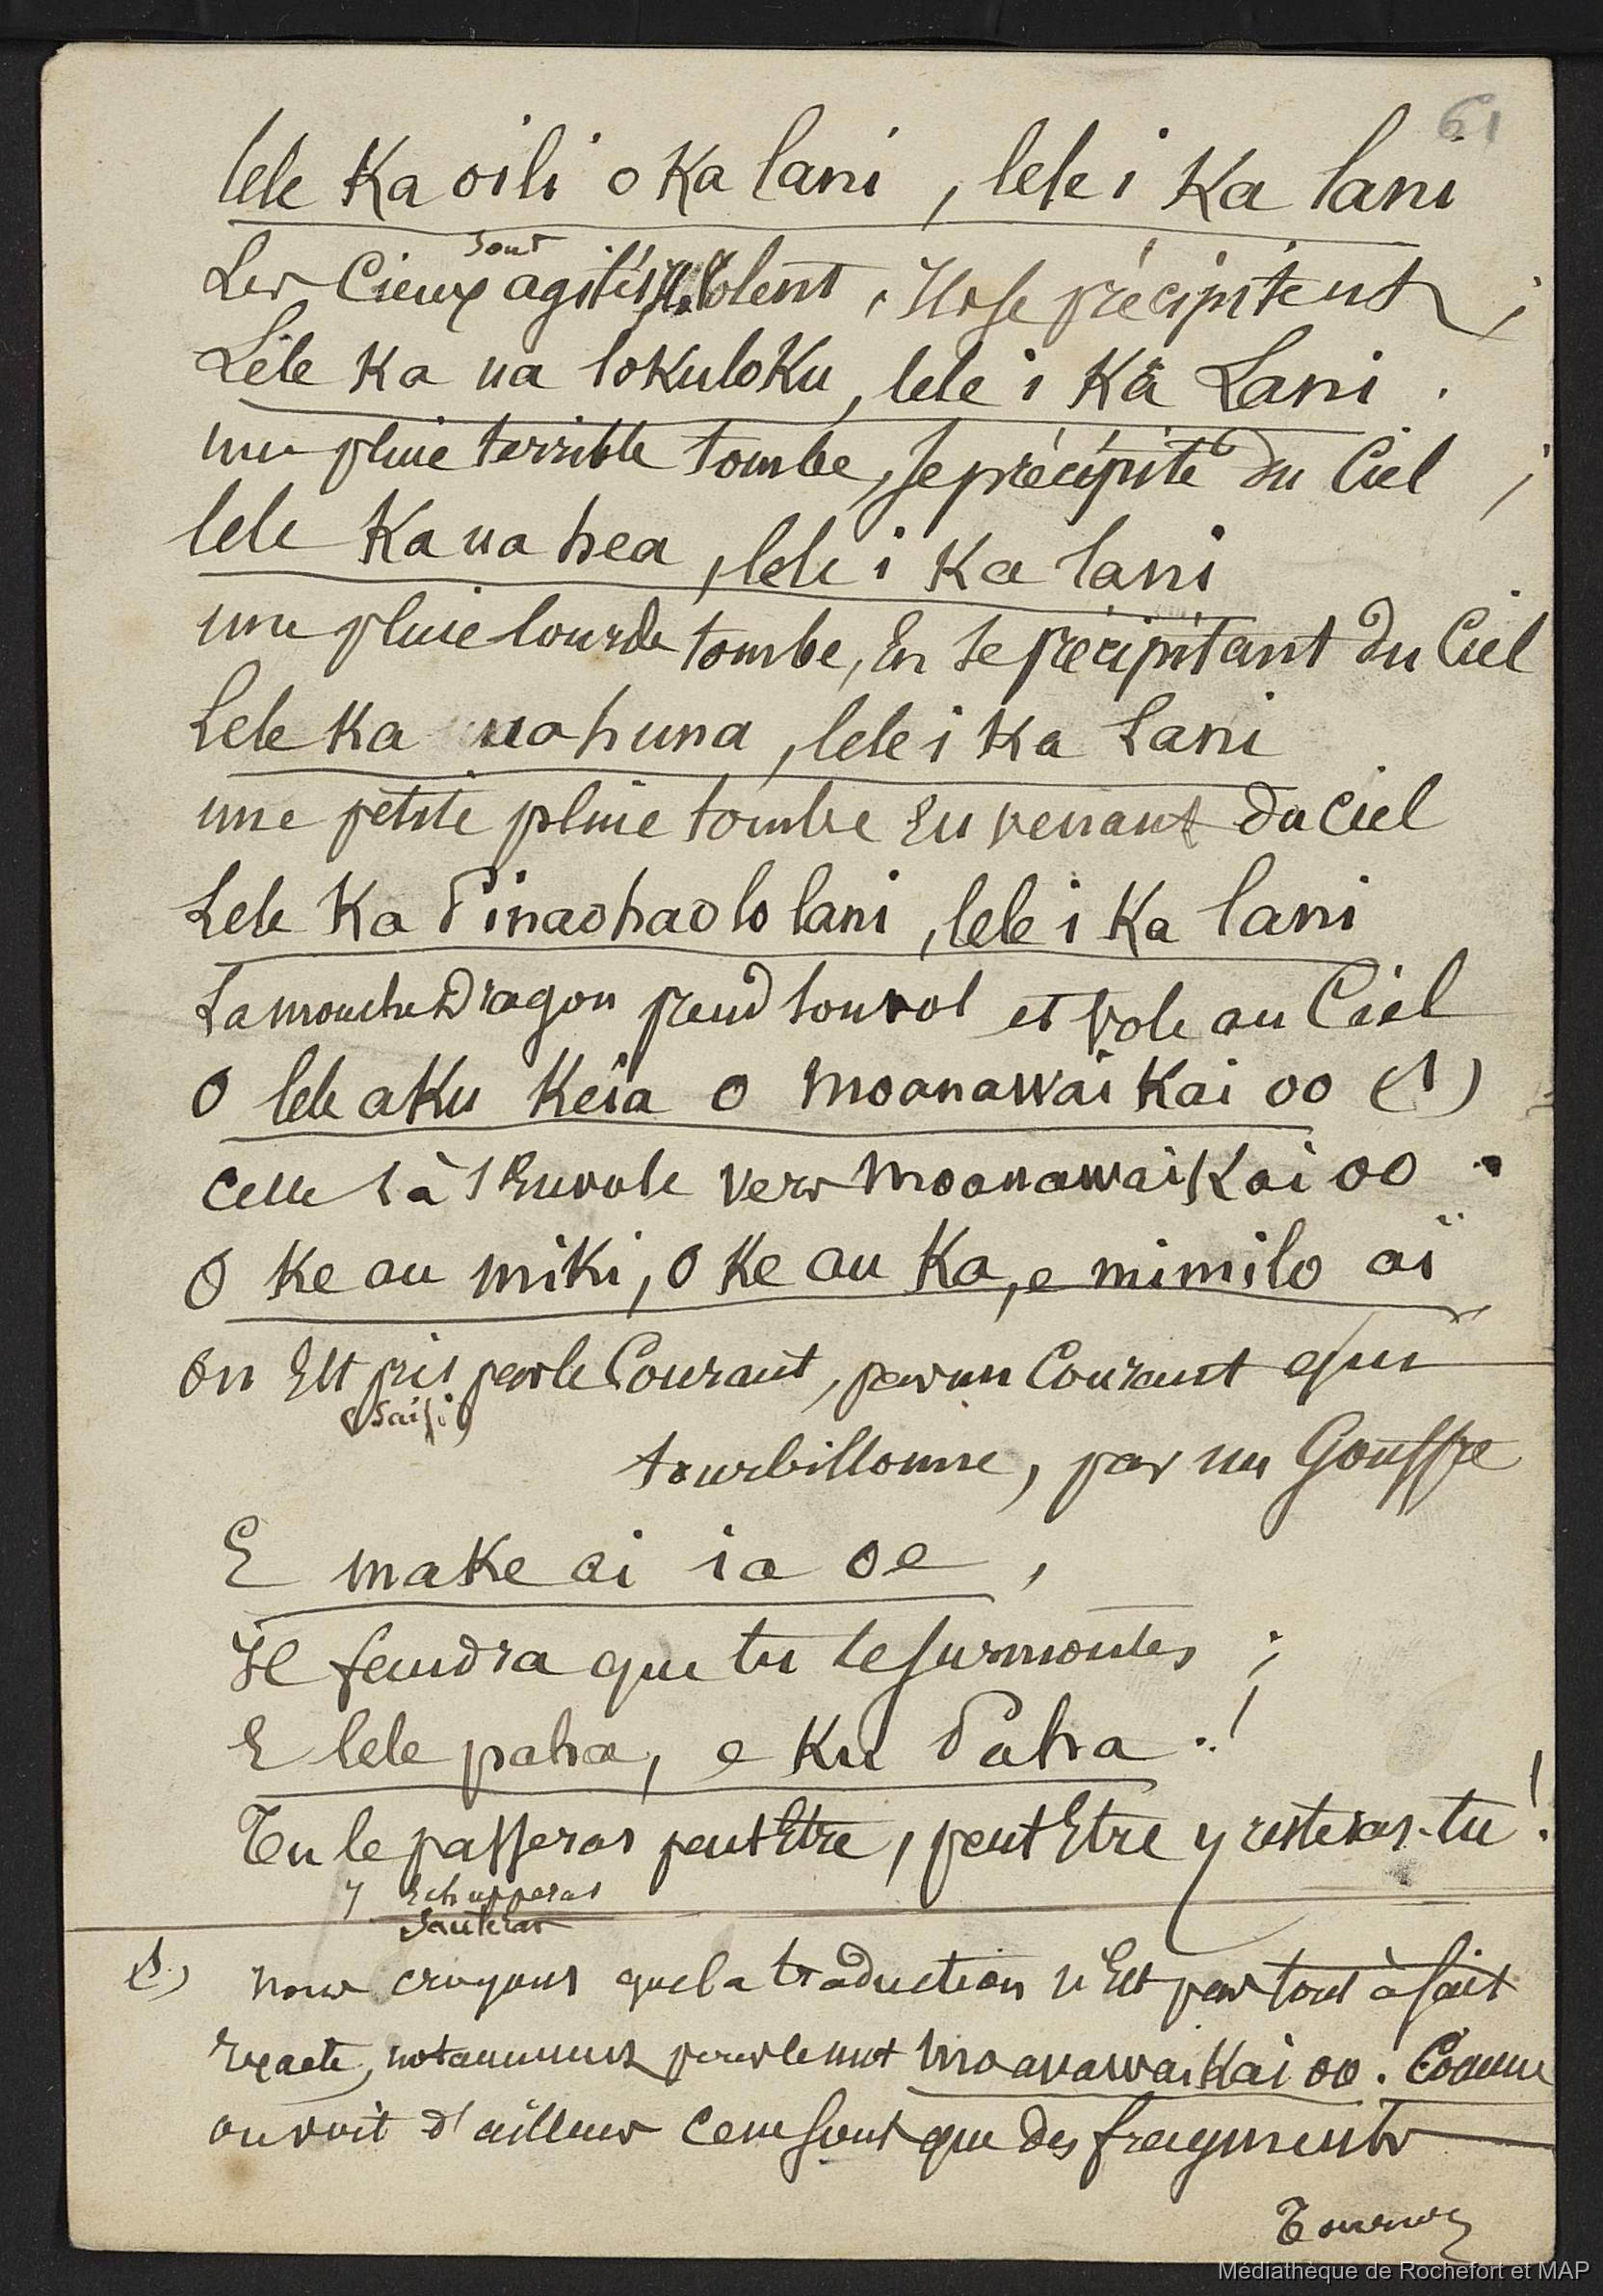 61
lele Ka oili o Ka lani, lele i Ka lani
sont
Les Cieux agités volent, Ils se précipitent;
Lele Ka ua lokuloKu, lele i Ka Lani.
une pluie terrible tombe, se précipite du Ciel;
lele Ka ua hea, lele i Ka lani
une pluie lourde tombe, En se précipitant du Ciel
Lele Ka ua huna, lele i Ka Lani
une petite pluie tombe En venant du Ciel
Lele Ka Pinaohaolo lani, lele i Ka lani
La mouche Dragon prend son vol et vole au Ciel
O lele aKu Keia o moanawaiKai oo (1)
Celle là s'Envole vers MoanawaiKai oo.
O Ke au miKi, O Ke au Ka, e mimilo aï
On Est pris par le Courant, par un Courant qui
(saisi)
tourbillonne, par un Gouffre
E make ai ia oe,
Il faudra que tu le surmontes;
E lele paha, e Ku Paha..!
Tu le passeras peut Etre, peut Etre y resteras-tu!.
y Echapperas
Sauteras
(1) nous croyons que la traduction n'Est pas tout à fait
Exacte, notamment pour le mot MoanawaiKai oo. Comme
on voit d'ailleurs Ce ne sont que des fragments
Médiathèque de Rochefort et MAP